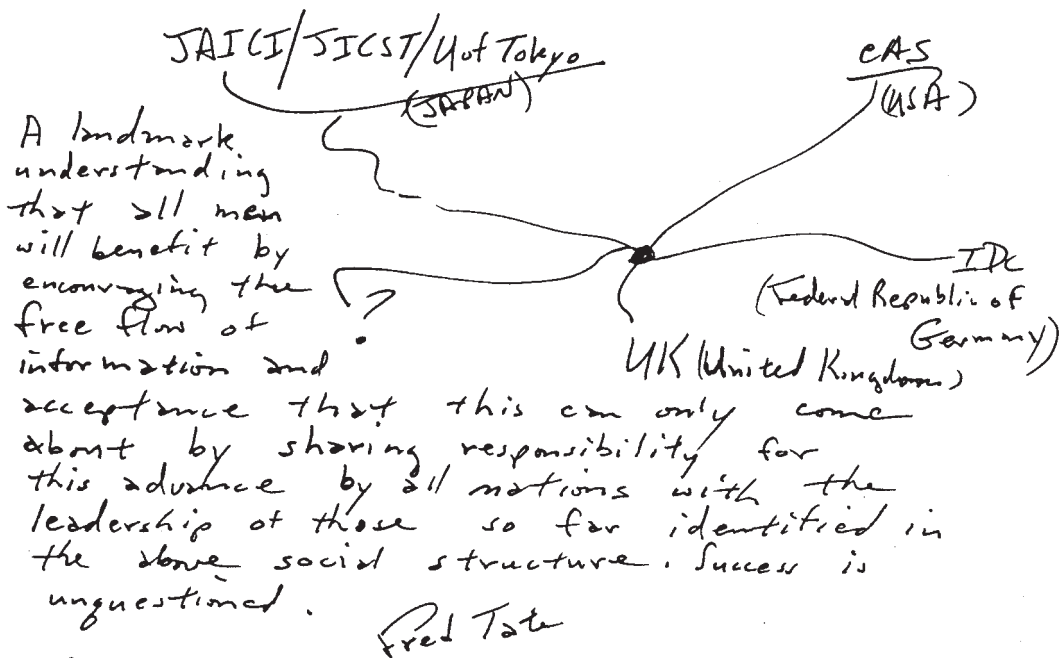 JAICI/JICST/U of Tokyo
(JAPAN)
CAS
(USA)
IDC
(Federal Republic of
Germany)
UK (United Kingdom)
?
A landmark
understanding
that all men
will benefit by
encouraging the
free flow of
information and
acceptance that this can only come
about by sharing responsibility for
this advance by all nations with the
leadership of those so far identified in
the above social structure. Success is
unquestioned.
Fred Tate